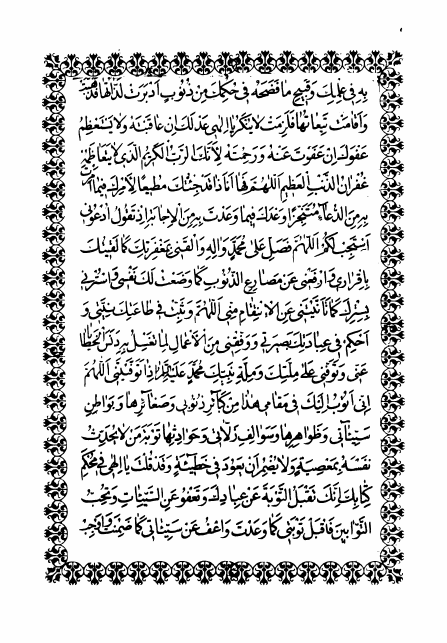 بِهِ فى عِلْمِكَ وَقَبيحِ ما فَضَحَهُ فى حُكْمِكَ مِنْ ذُنُوبٍ اَدْبَرَتْ لَذّاتُها فَذَهَبَتْ
وَاَقامَتْ تَبِعاتُها فَلَزِمَتْ لا يُنْكِرُ يا اِلٰهى عَدْلَكَ اِنْ عاقَبْتَهُ وَلا يَسْتَعْظِمُ
عَفْوَكَ اِنْ عَفَوْتَ عَنْهُ وَرَحِمْتَهُ لِاَنَّكَ الرَّبُّ الْكَريمُ الَّذى لا يَتَعاظَمُهُ
غُفْرانُ الذَّنْبِ الْعَظيمِ اَللّٰهُمَّ فَها اَنَا ذا قَدْ جِئْتُكَ مُطيعًا لِاَمْرِكَ فيما اَمَرْتَ
بِهِ مِنَ الدُّعاءِ مُتَنَجِّزًا وَعْدَكَ فيما وَعَدْتَ بِهِ مِنَ الْاِجابَةِ اِذْ تَقُولُ ادْعُونى
اَسْتَجِبْ لَكُمْ اَللّٰهُمَّ فَصَلِّ عَلى مُحَمَّدٍ وَالِهِ وَالْقَنى بِمَغْفِرَتِكَ كَما لَقيتُكَ
بِاِقْرارى وَارْفَعْنى عَنْ مَصارِعِ الذُّنُوبِ كَما وَضَعْتُ لَكَ نَفْسى وَاسْتُرْنى
بِسِتْرِكَ كَما تَاَنَّيْتَنى عَنِ الْاِنْتِقامِ مِنّى اَللّٰهُمَّ وَثَبِّتْ فى طاعَتِكَ نِيَّتى وَ
اَحْكِمْ فى عِبادَتِكَ بَصيرَتى وَوَفِّقْنى مِنَ الْاَعْمالِ لِما تَغْسِلُ بِهِ دَنَسَ الْخَطايا
عَنّى وَتَوَفَّنى عَلى مِلَّتِكَ وَمِلَّةِ نَبِيِّكَ مُحَمَّدٍ عَلَيْهِ السَّلامُ اِذا تَوَفَّيْتَنى اَللّٰهُمَّ
اِنّى اَتُوبُ اِلَيْكَ فى مَقامى هٰذا مِنْ كَبائِرِ ذُنُوبى وَصَغائِرِها وَبَواطِنِ
سَيِّئاتى وَظَواهِرِها وَسَوالِفِ زَلّاتى وَحَوادِثِها تَوْبَةَ مَنْ لا يُحَدِّثُ
نَفْسَهُ بِمَعْصِيَةٍ وَلا يُضْمِرُ اَنْ يَعُودَ فى خَطيئَةٍ وَقَدْ قُلْتَ يا اِلٰهى فى مُحْكَمِ
كِتابِكَ اِنَّكَ تَقْبَلُ التَّوْبَةَ عَنْ عِبادِكَ وَتَعْفُو عَنِ السَّيِّئاتِ وَتُحِبُّ
التَّوّابينَ فَاقْبَلْ تَوْبَتى كَما وَعَدْتَ وَاعْفُ عَنْ سَيِّئاتى كَما ضَمِنْتَ وَاَوْجِبْ